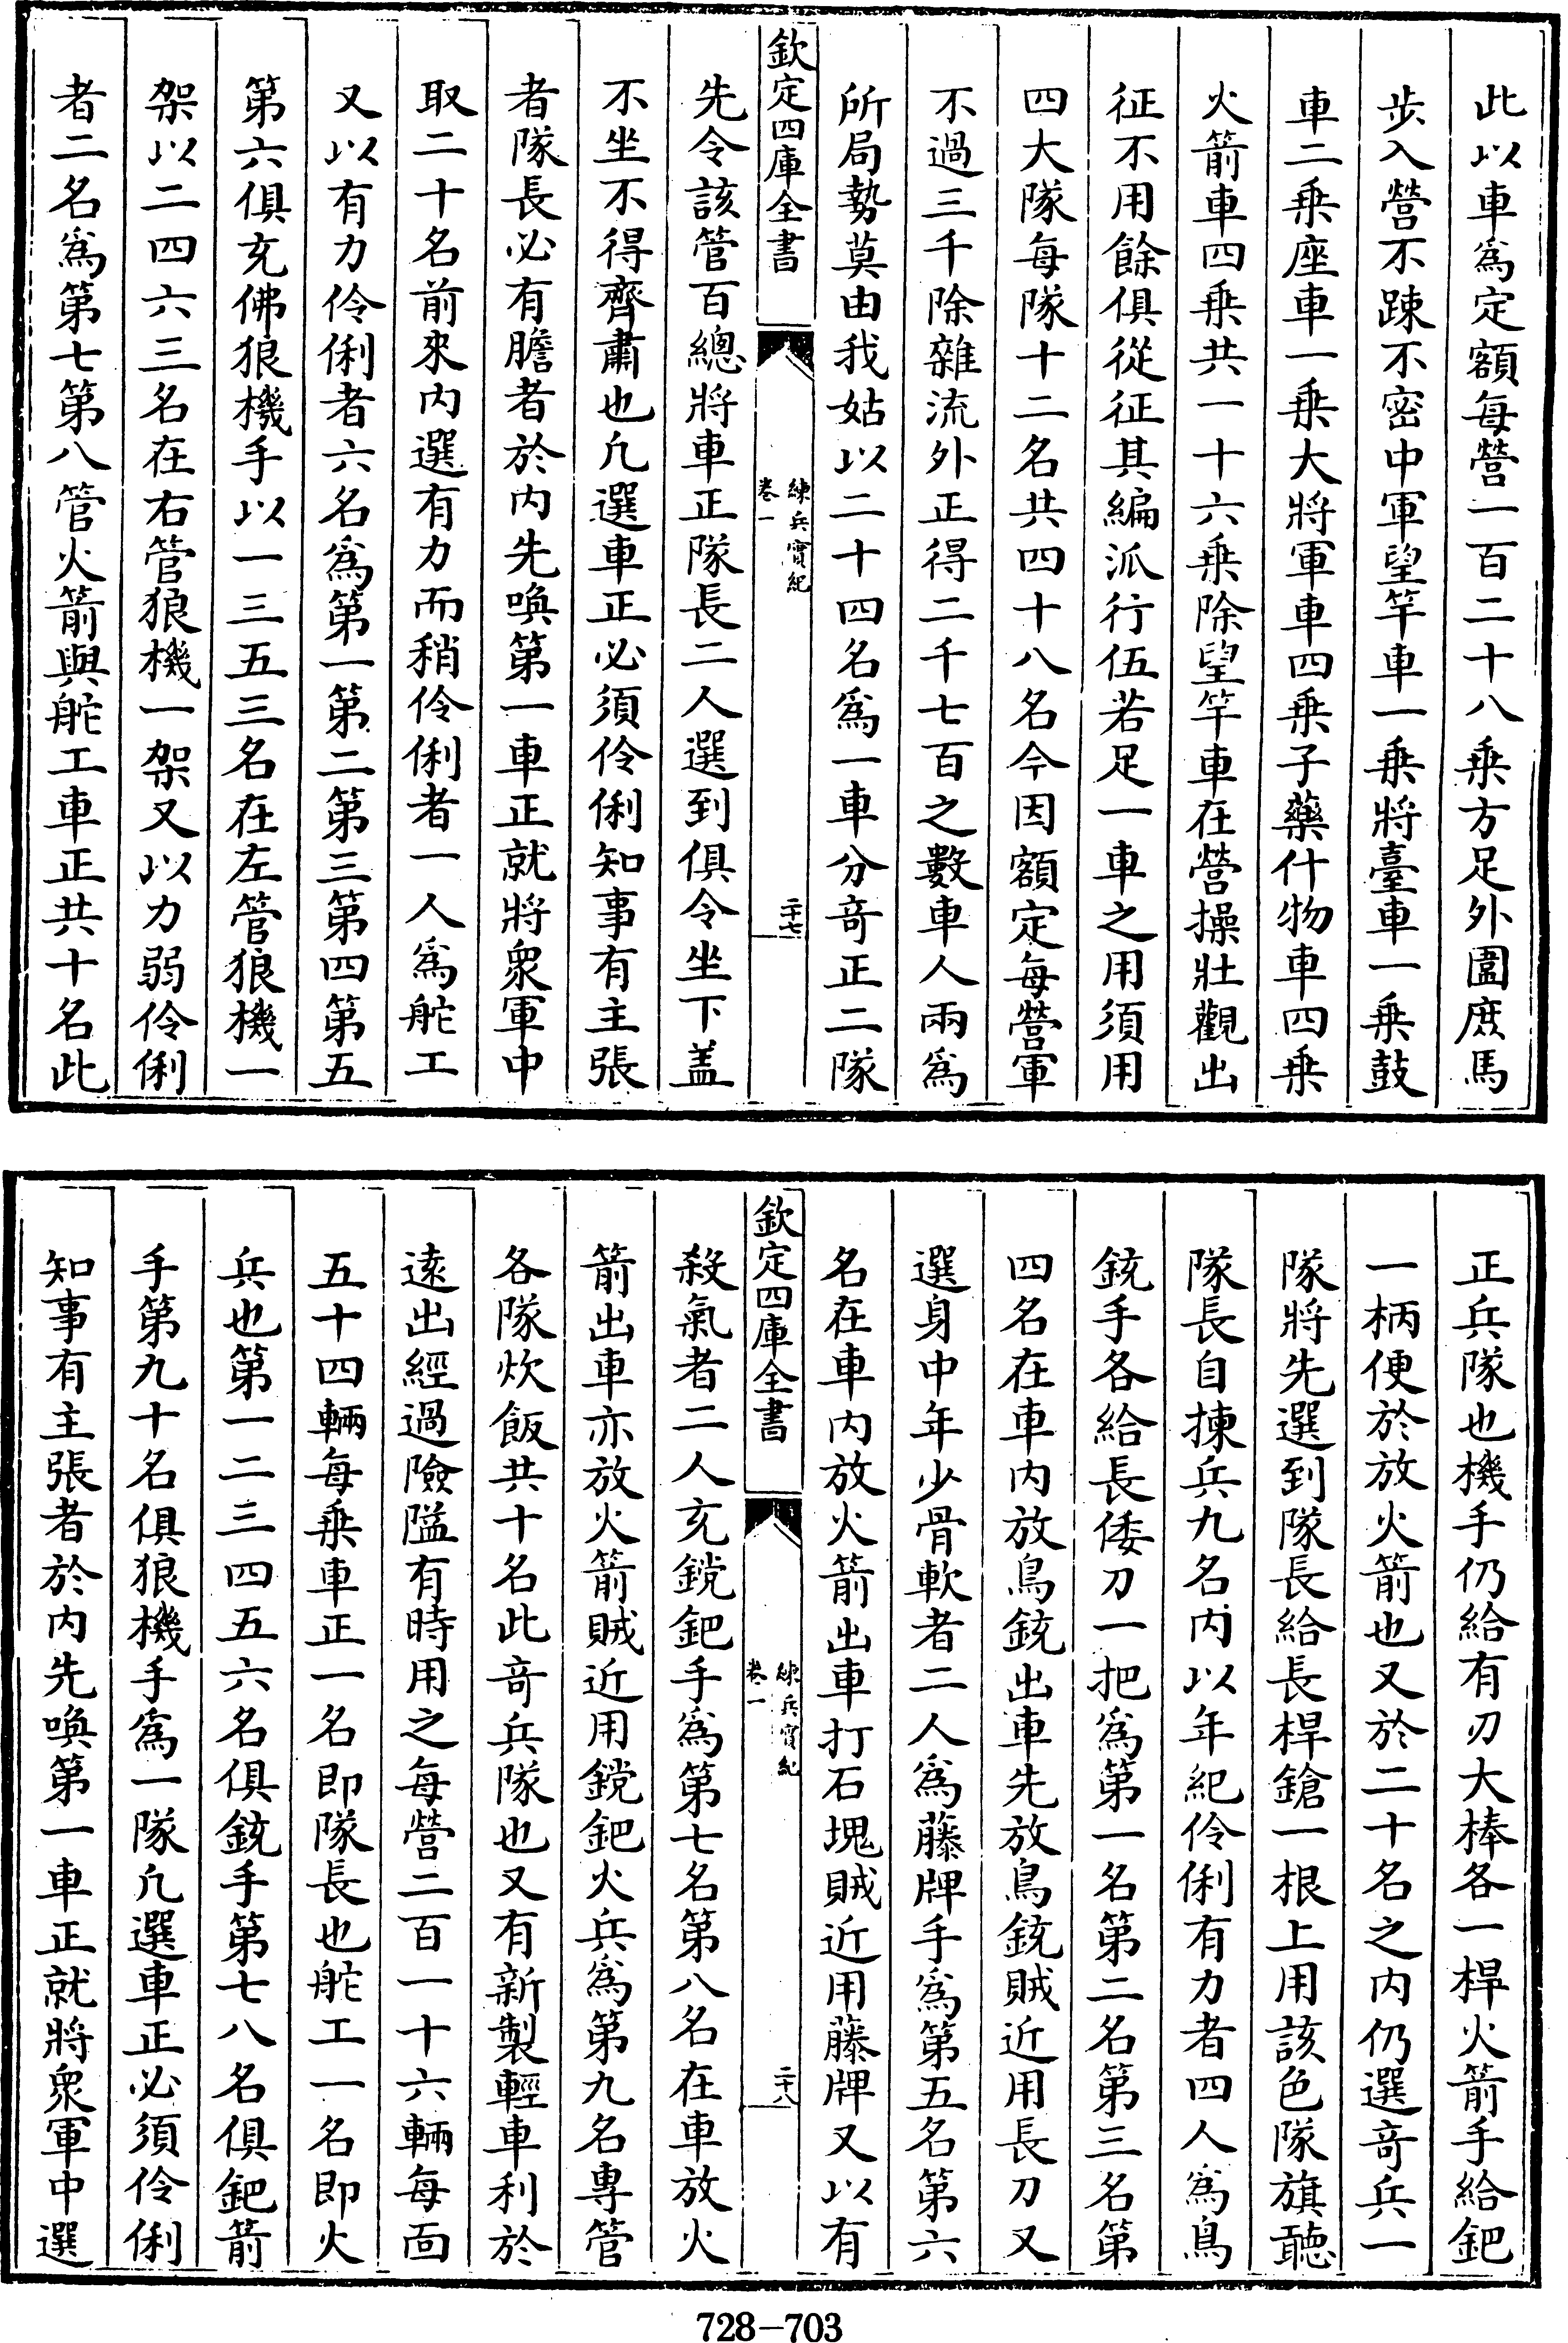 此以車爲定額每營一百二十八乗方足外圍庶馬
步入營不踈不密中軍望竿車一乗將臺車一乗鼓
車二乗座車一乗大將軍車四乗子藥什物車四乗
火箭車四乗共一十六乗除望竿車在營操壯觀出
征不用餘俱從征其編派行伍若足一車之用須用
四大隊每隊十二名共四十八名今因額定每營軍
不過三千除雜流外正得二千七百之數車人兩爲
所局勢莫由我姑以二十四名爲一車分竒正二隊
欽定四庫全書
練兵實紀
卷一
二十七
先令該管百總將車正隊長二人選到俱令坐下盖
不坐不得齊肅也凢選車正必須伶俐知事有主張
者隊長必有膽者於内先喚第一車正就將衆軍中
取二十名前來内選有力而稍伶俐者一人爲舵工
又以有力伶俐者六名爲第一第二第三第四第五
第六俱充佛狼機手以一三五三名在左管狼機一
架以二四六三名在右管狼機一架又以力弱伶俐
者二名爲第七第八管火箭與舵工車正共十名此
正兵隊也機手仍給有刃大棒各一桿火箭手給鈀
一柄便於放火箭也又於二十名之内仍選竒兵一
隊將先選到隊長給長桿鎗一根上用該色隊旗聽
隊長自揀兵九名内以年紀伶俐有力者四人爲鳥
銃手各給長倭刀一把爲第一名第二名第三名第
四名在車内放鳥銃出車先放鳥銃賊近用長刀又
選身中年少骨軟者二人爲藤牌手爲第五名第六
名在車内放火箭出車打石塊賊近用藤牌又以有
欽定四庫全書
練兵實紀
卷一
二十八
殺氣者二人充钂鈀手爲第七名第八名在車放火
箭出車亦放火箭賊近用钂鈀火兵爲第九名專管
各隊炊飯共十名此竒兵隊也又有新製輕車利於
遠出經過險隘有時用之每營二百一十六輛每面
五十四輛每乗車正一名即隊長也舵工一名即火
兵也第一二三四五六名俱銃手第七八名俱鈀箭
手第九十名俱狼機手爲一隊凢選車正必須伶俐
知事有主張者於内先喚第一車正就將衆軍中選
728-703